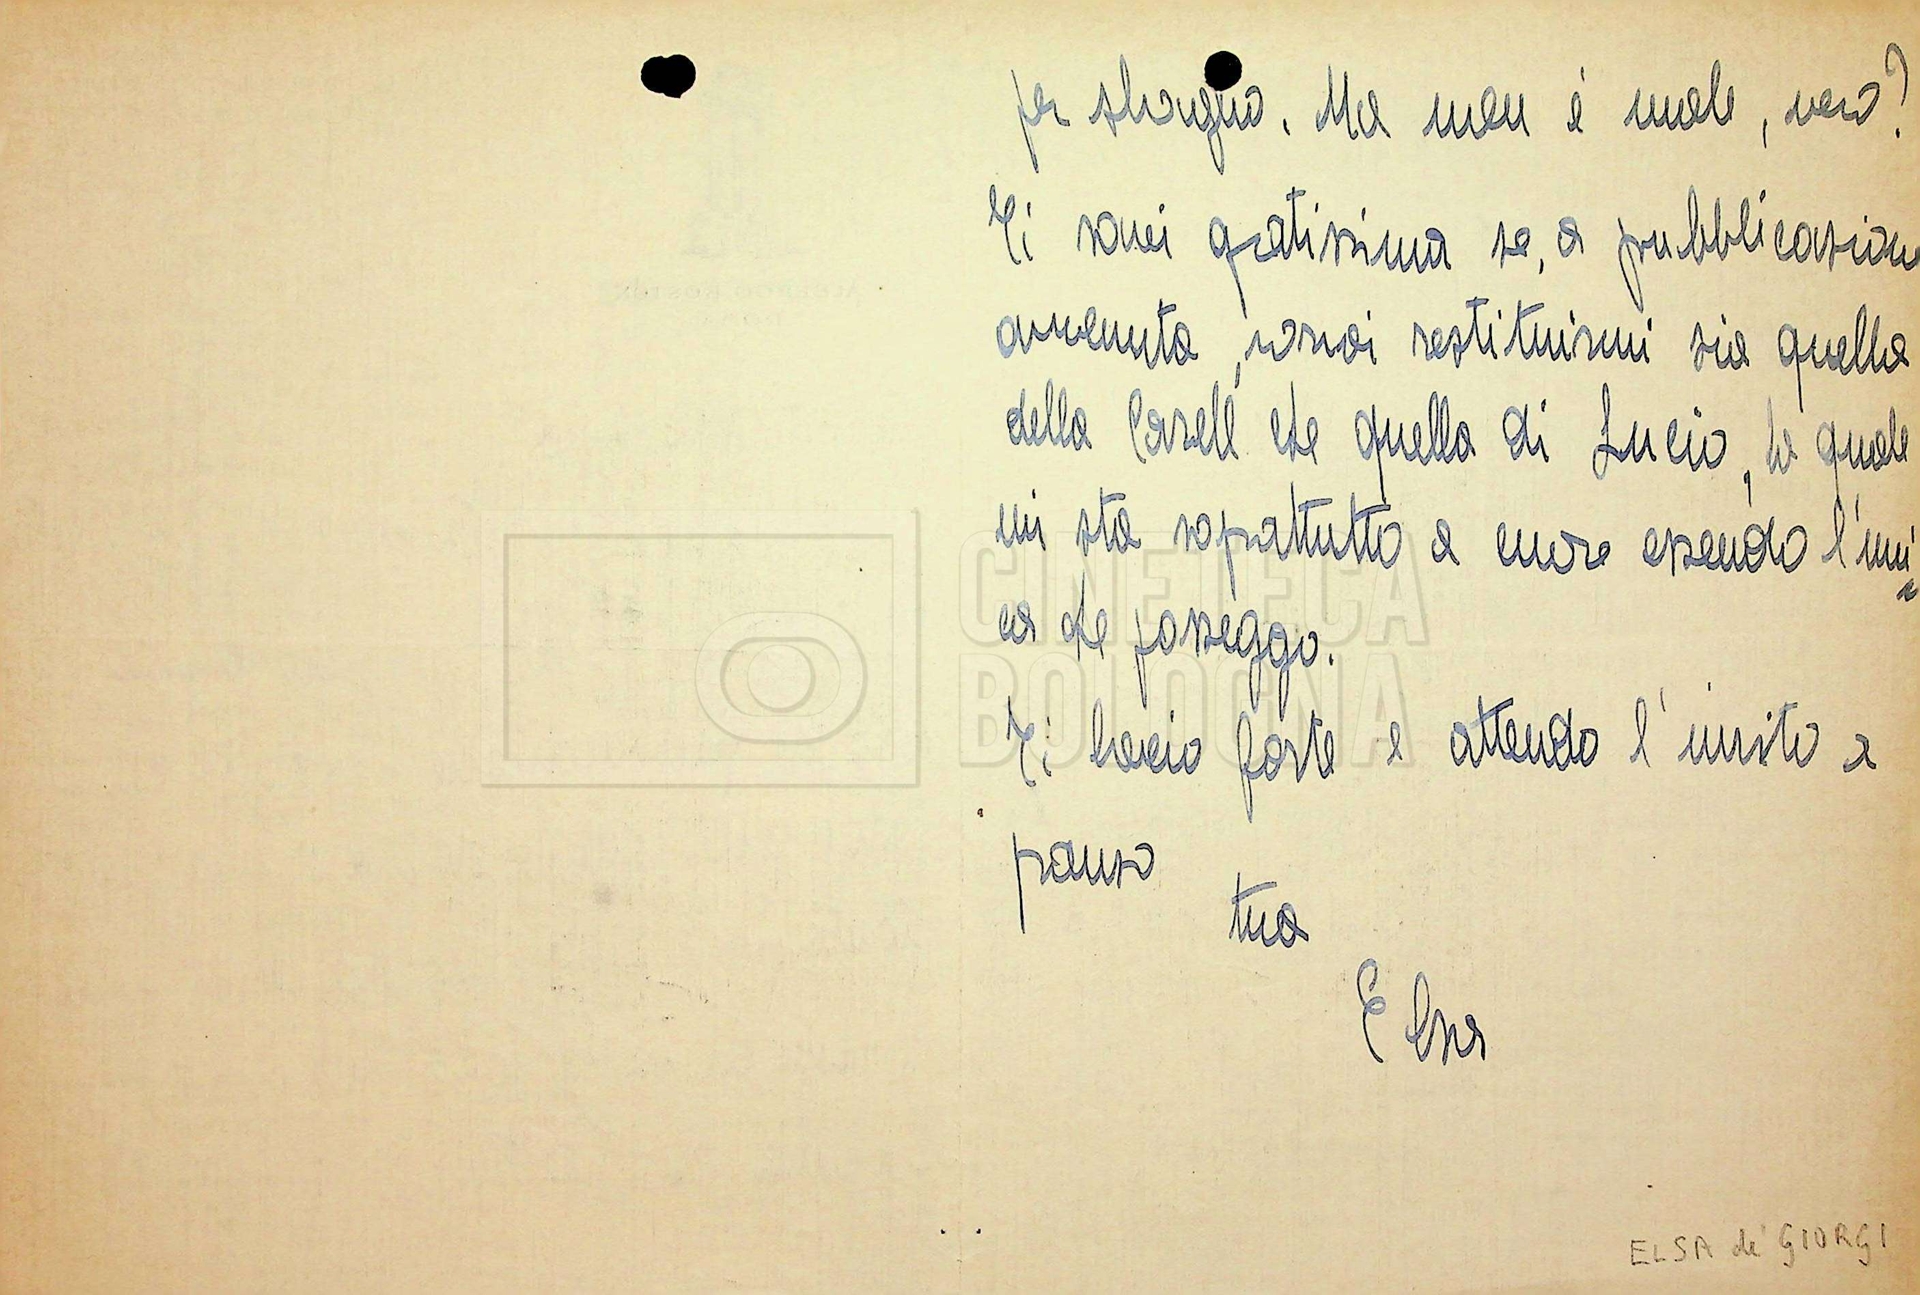 per sbaglio. Ma non è male, vero?
Ti sarei gratissima se, a pubblicazione
avvenuta, vorrai restituirmi sia quella
della Casell che quella di Lucio, la quale
mi sta soprattutto a cuore essendo l'uni
ca che posseggo.
Ti bacio forte e attendo l'invito a
pranzo
tua
Elsa
CINETECA
BOLOGNA
ELSA de' GIORGI